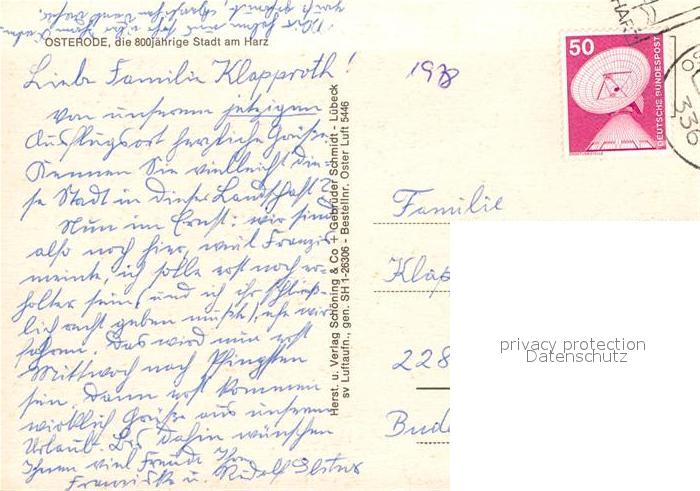 OSTERODE, die 800jährige Stadt am Harz
Liebe Familie Klapproth!
Von unserem jetzigen
Ausflugsort herzliche Grüße.
Kennen Sie vielleicht die-
se Stadt in dieser Landschaft?
Nun im Ernst: wir sind
also noch hier, weil Franzis
meinte, ich solle erst noch er-
holter sein, und ich ihr schließ-
lich recht geben mußte, ehe wir
fahren. Das wird nun erst
Mittwoch nach Pfingsten
sein. Dann erst kommen
wirklich Grüße aus unserem
Urlaub. Bis dahin wünschen
Ihnen viel Freude Ihre
Franziska u. Rudolf
Herst. u. Verlag Schöning & Co + Gebrüder Schmidt - Lübeck
sv Luftaufn., gen. SH 1-26306 - Bestellnr. Oster Luft 5446
1978
50
DEUTSCHE BUNDESPOST
336
Familie
Klap
228
Bude
privacy protection
Datenschutz